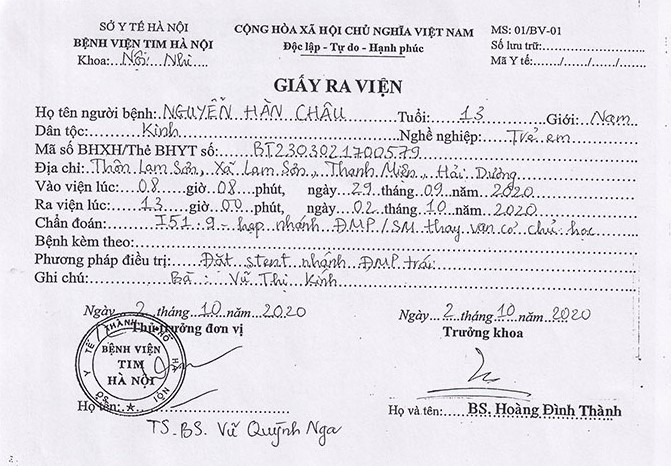 SỞ Y TẾ HÀ NỘI
BỆNH VIỆN TIM HÀ NỘI
Khoa: Nội Nhi
CỘNG HÒA XÃ HỘI CHỦ NGHĨA VIỆT NAM
Độc lập - Tự do - Hạnh phúc
MS: 01/BV-01
Số lưu trữ:
Mã Y tế:....../....../....../......
GIẤY RA VIỆN
Họ tên người bệnh: NGUYỄN HÀN CHÂU Tuổi: 13 Giới: Nam
Dân tộc: Kinh Nghề nghiệp: Trẻ em
Mã số BHXH/Thẻ BHYT số: BT2303021700579
Địa chỉ: Thôn Lam Sơn, Xã Lam Sơn, Thanh Miện, Hải Dương
Vào viện lúc: 08 giờ 08 phút, ngày 29 tháng 09 năm 2020
Ra viện lúc: 13 giờ 00 phút, ngày 02 tháng 10 năm 2020
Chẩn đoán: I51.9 - hẹp nhánh ĐMP/SM thay van cơ chủ học
Bệnh kèm theo:
Phương pháp điều trị: Đặt stent nhánh ĐMP trái
Ghi chú: Bà: Vũ Thị Kính
Ngày 2 tháng 10 năm 2020
Thủ trưởng đơn vị
SỞ Y TẾ THÀNH PHỐ HÀ NỘI
BỆNH VIỆN
TIM
HÀ NỘI
Họ tên:
TS.BS. Vũ Quỳnh Nga
Ngày 2 tháng 10 năm 2020
Trưởng khoa
Họ và tên: BS. Hoàng Đình Thành